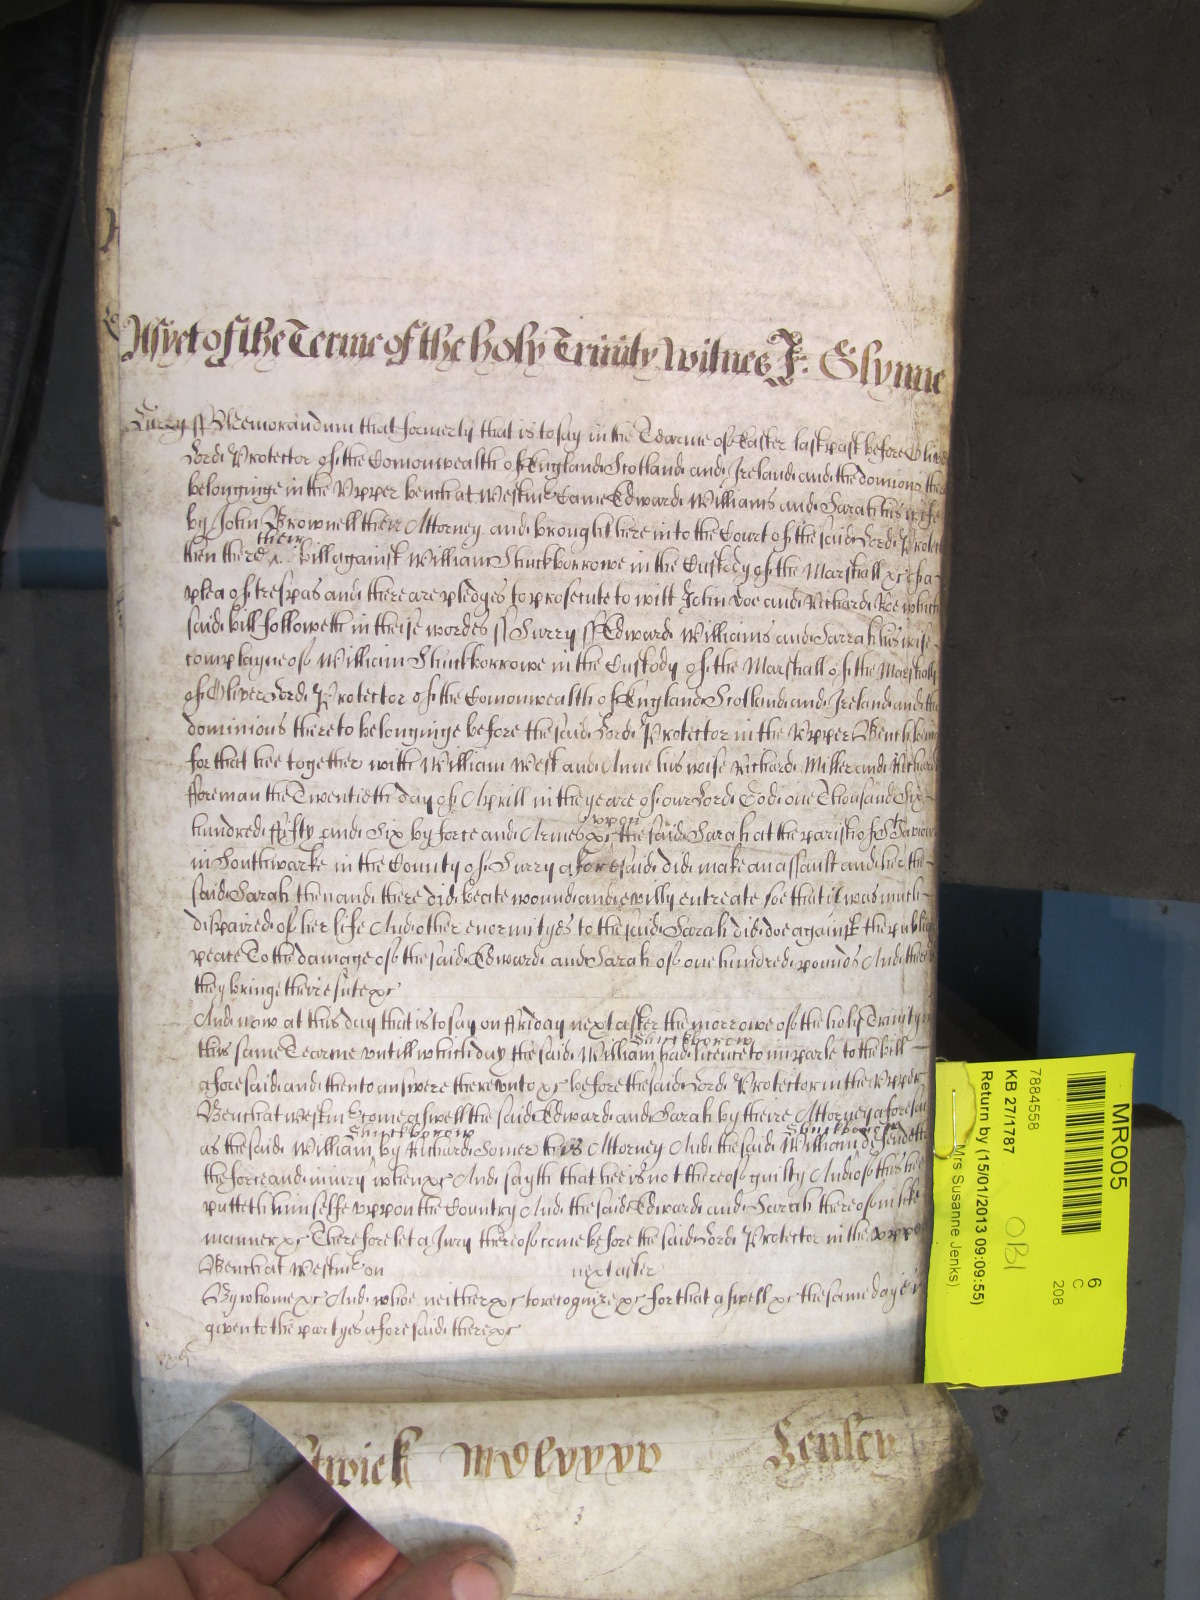 As yet of the Terme of the holy Trinity Witnes J: Glynne
Surry ss Memorandum that formerly that is to say in the Tearme of Easter last past before Oliver
Lord Protector of the Comonwealth of England Scotland and Ireland and the dominions there
belonginge in the Vpper bench at Westmr Came Edward Williams and Sarah his wife
by John Brownell their Attorney and brought here into the Court of the said Lord Protector
then there their bill against William Shuckborrowe in the Custody of the Marshall &c of a
plea of trespas and there are pledges to prosecute to witt John Doe and Richard Roe which
said bill followeth in theise wordes ss Surry ss Edward Williams and Sarrah his wife
complayne of William Shuckborrowe in the Custody of the Marshall of the Marshalls
of Oliver Lord Protector of the Comonwealth of England Scotland and Ireland and the
dominions thereto belonginge before the said Lord Protector in the Vpper Bench being
for that hee together with William West and Anne his wife Richard Miller and Richard
fforeman the Twentieth day of Aprill in the yeare of our Lord God one Thousand Six
hundred ffifty and Six by force and Armes &c vpon the said Sarah at the parish of St Saviour
in Southwarke in the County of Surry aforesaid did make an assault and her the
said Sarah then and there did beate wound and evilly entreate soe that it was much
dispaired of her life And other enormityes to the said Sarah did doe against the publique
peace To the damage of the said Edward and Sarah of one hundred pounds And thereof
they bringe theire suite &c
And now at this day that is to say on ffriday next after the morrowe of the holy Trinity in
this same Tearme vntill which day the said William Shuckborow had licence to imparle to the bill
aforesaid and then to answere therevnto &c before the said Lord Protector in the Vpper
Bench at Westmr come aswell the said Edward and Sarah by theire Attorney aforesaid
as the said William Shuckborow by Richard Somer his Attorney And the said William Shuckborow defendeth
the force and iniury when &c And sayth that hee is not thereof guilty And of this hee
putteth himselfe vppon the Country And the said Edward and Sarah thereof in like
manner &c Therefore let a Jury thereof come before the said Lord Protector in the vpper
Bench at Westmr on next after
By whome &c And whoe neither &c to recognize &c for that aswell &c the same day is
given to the partyes aforesaid there &c
twick MDlxxxv Lenley
3
MR005
6
C
208
7884558
KB 27/1787
OBI
Return by (15/01/2013 09:09:55)
Mrs Susanne Jenks)